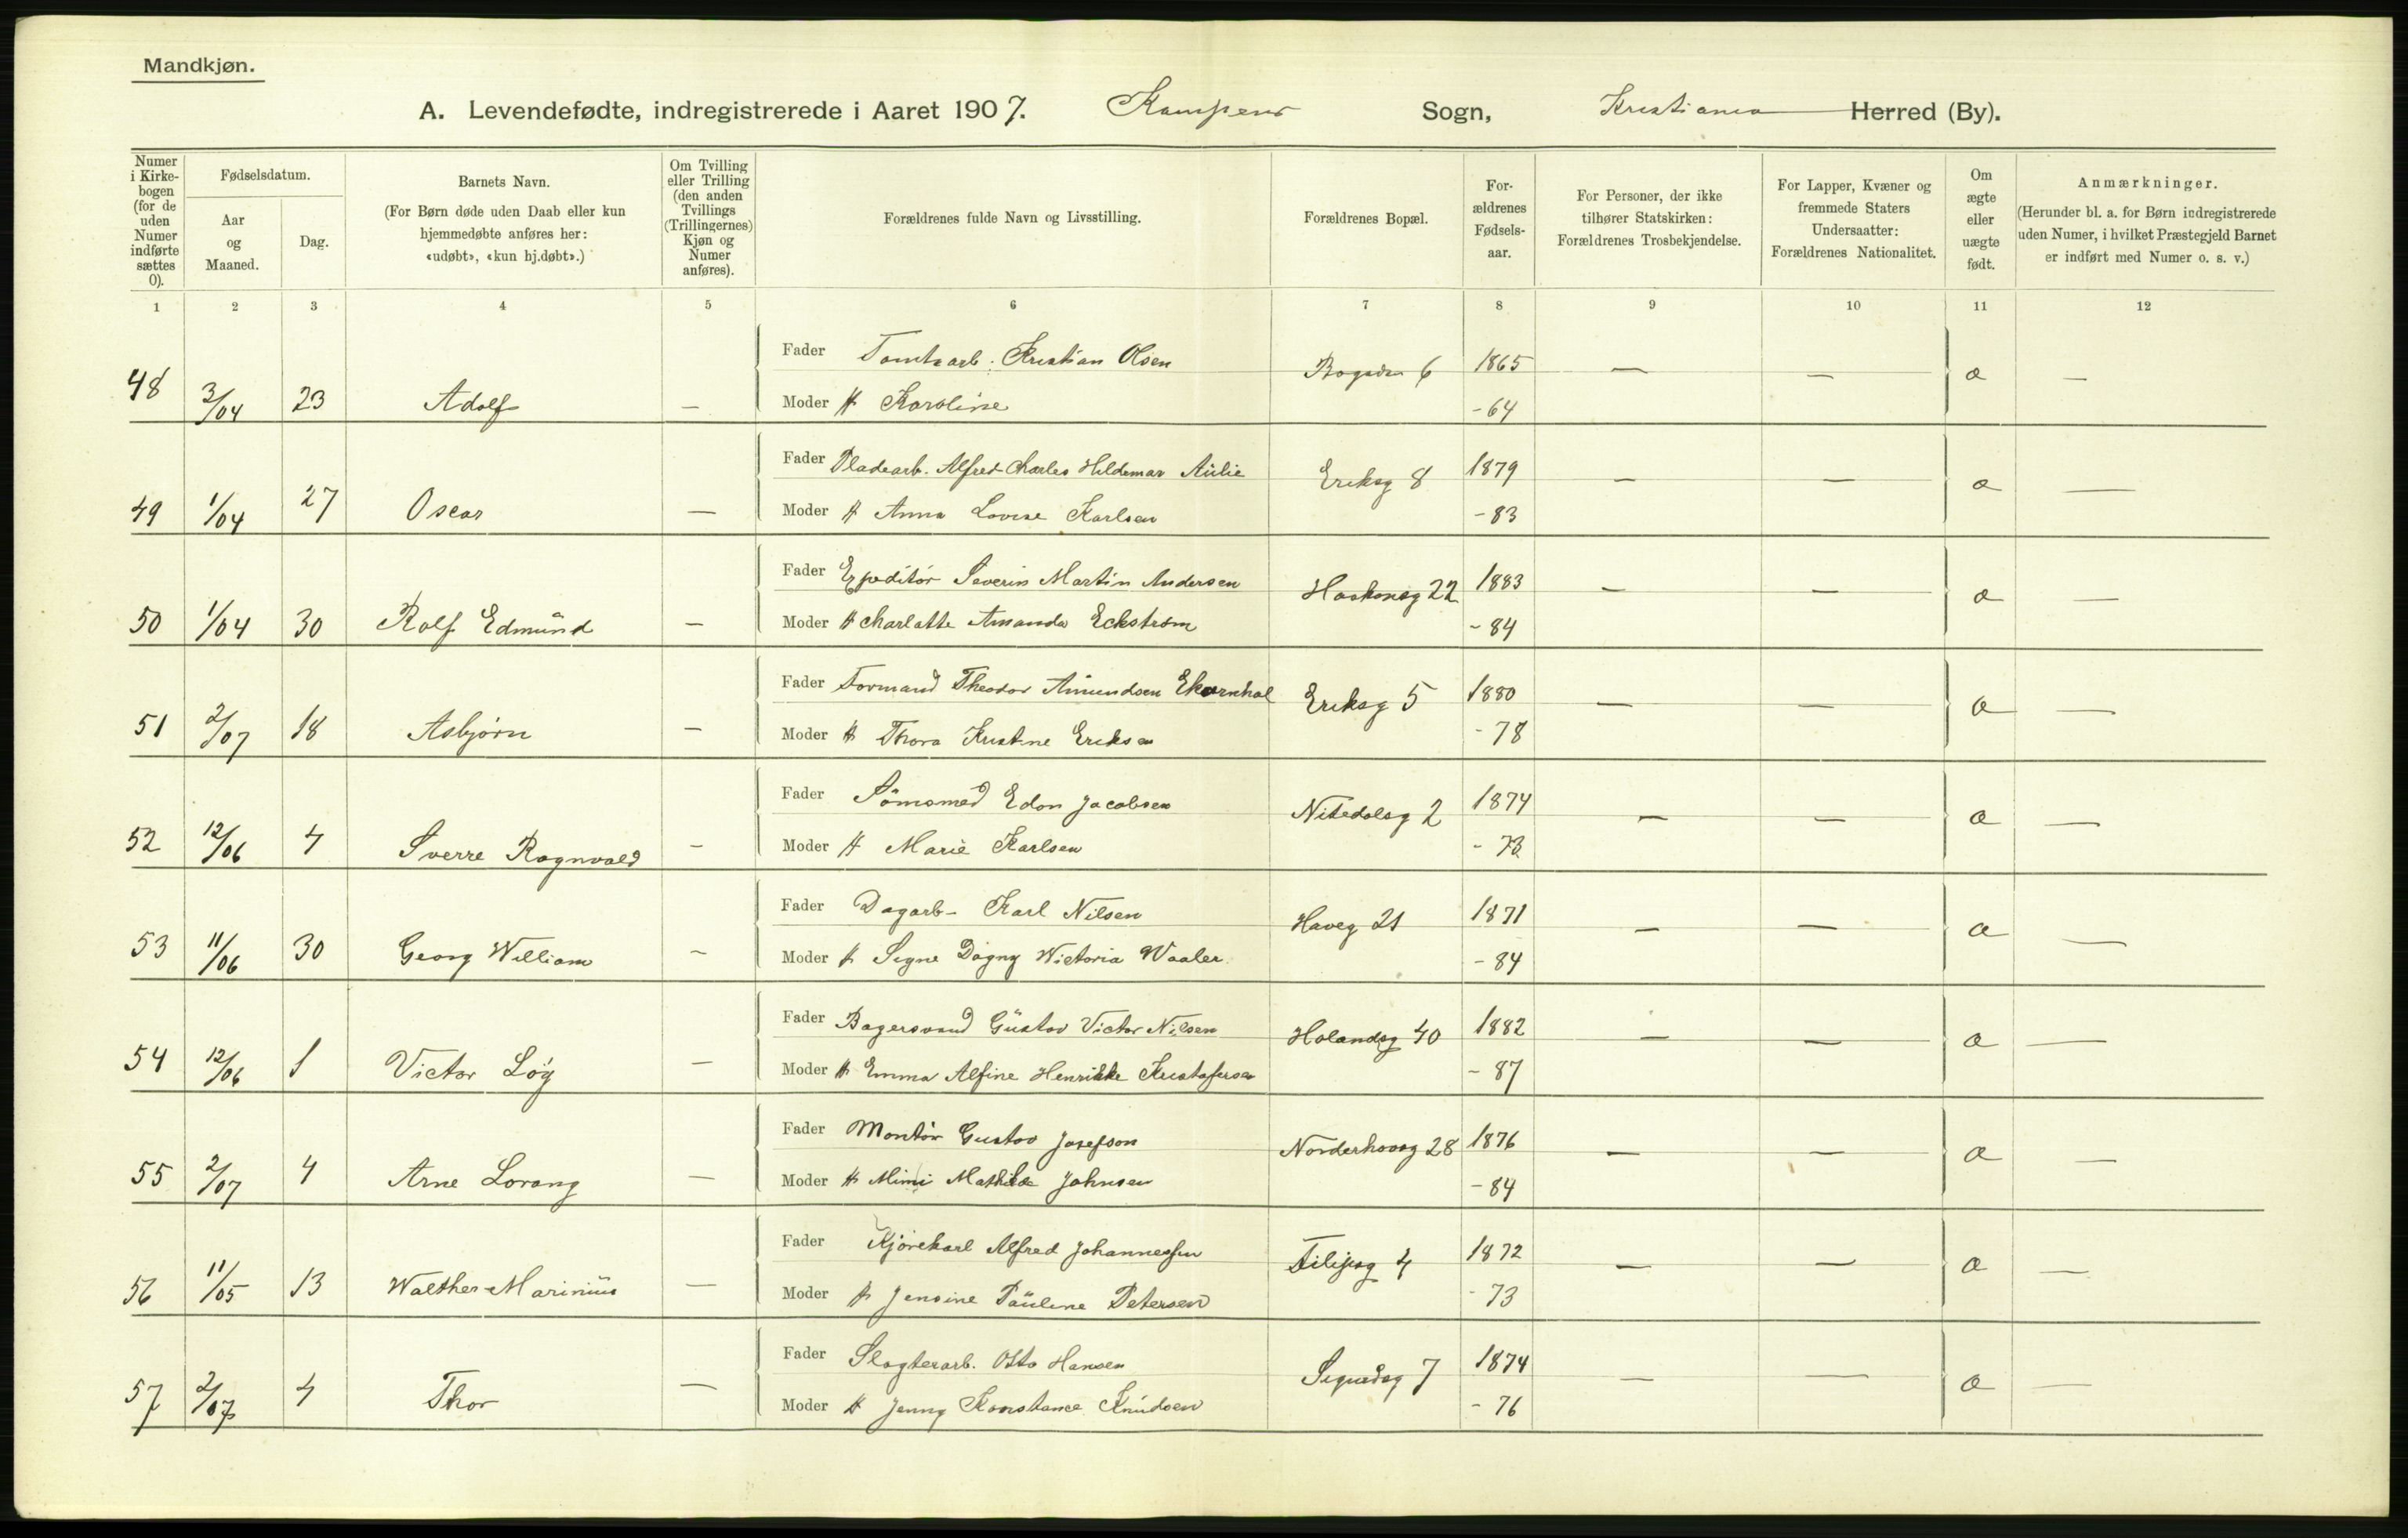 Mandkjøn.
A. Levendefødte, indregistrerede i Aaret 1907. Kampens Sogn, Kristiania Herred (By).
Numer i Kirkebogen (for de uden Numer indførte sættes 0).
Fødselsdatum.
Aar og Maaned.
Dag.
Barnets Navn.
(For Børn døde uden Daab eller kun hjemmedøbte anføres her: «udøbt», «kun hj.døbt».)
Om Tvilling eller Trilling (den anden Tvillings (Trillingernes) Kjøn og Numer anføres).
Forældrenes fulde Navn og Livsstilling.
Forældrenes Bopæl.
Forældrenes Fødselsaar.
For Personer, der ikke tilhører Statskirken: Forældrenes Trosbekjendelse.
For Lapper, Kvæner og fremmede Staters Undersaatter: Forældrenes Nationalitet.
Om ægte eller uægte født.
Anmærkninger.
(Herunder bl. a. for Børn indregistrerede uden Numer, i hvilket Præstegjeld Barnet er indført med Numer o. s. v.)
1 2 3 4 5 6 7 8 9 10 11 12
Fader Tomtearb. Kristian Olsen 1865
48 3/04 23 Adolf — Moder H Karoline -64 — — æ —
Fader Pladearb. Alfred Charles Hildemar Aulie Eriksg 8 1879
49 1/04 27 Oscar — Moder H Anna Lovise Karlsen -83 — — æ —
Fader Expeditør Severin Martin Andersen Haakonsg 22 1883
50 1/04 30 Rolf Edmund — Moder H Charlatte Amanda Eckstrøm -84 — — æ —
Fader Formand Theodor Amundsen Ekornhol Eriksg 5 1880
51 2/07 18 Asbjørn — Moder H Thora Kristine Eriksen -78 — — æ —
Fader Sömsmed Edon Jacobsen Nitedalsg 2 1874
52 12/06 4 Sverre Ragnvald — Moder H Marie Karlsen -73 — — æ —
Fader Dagarb- Karl Nilsen Haveg 21 1871
53 11/06 30 Georg William — Moder H Signe Dagny Wictoria Waaler -84 — — æ —
Fader Bagersvend Gustav Victor Nilsen Holandsg 40 1882
54 12/06 1 Victor Løg — Moder H Emma Alfine Henrikke Kristofersen -87 — — æ —
Fader Montör Gustav Josefson Norderhovsg 28 1876
55 2/07 4 Arne Lorang — Moder H Mimi Mathilde Johnsen -84 — — æ —
Fader Kjørekarl Alfred Johannessen Filipsg 4 1872
56 11/05 13 Walther Marinius — Moder H Jensine Pauline Petersen -73 — — æ —
Fader Slagterarb. Otto Hansen 7 1874
57 2/07 4 Thor — Moder H Jenny Konstance Knudsen -76 — — æ —